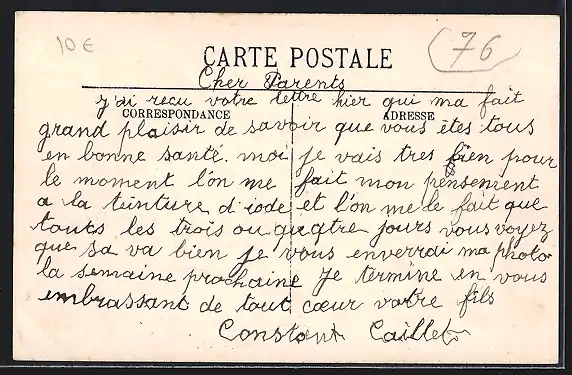 10 €
76
CARTE POSTALE
Cher Parents
j'ai recu votre lettre hier qui ma fait
CORRESPONDANCE ADRESSE
grand plaisir de savoir que vous êtes tous
en bonne santé. moi je vais tres bien pour
le moment l'on me fait mon pensement
a la teinture d'iode et l'on me le fait que
touts les trois ou quqtre jours vous voyez
que sa va bien je vous enverrai ma photo
la semaine prochaine je termine en vous
embrassant de tout cœur votre fils
Constant Caillet